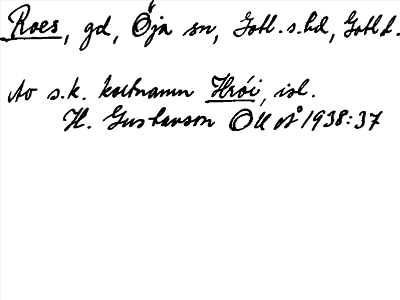 Roes, gd, Öja sn, Gotl. s. hd, Gotl l.
Av s.k. kortnamn Hrói, isl.
H. Gustavson OUÅ 1938:37